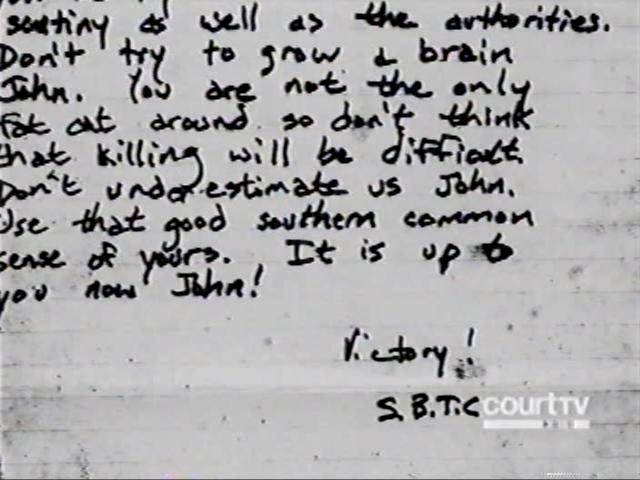 scutiny as well as the authorities.
Don't try to grow a brain
John. You are not the only
fat cat around so don't think
that killing will be difficult.
Don't underestimate us John.
Use that good southern common
sense of yours. It is up to
you now John!
Victory!
S.B.T.C
COURT TV